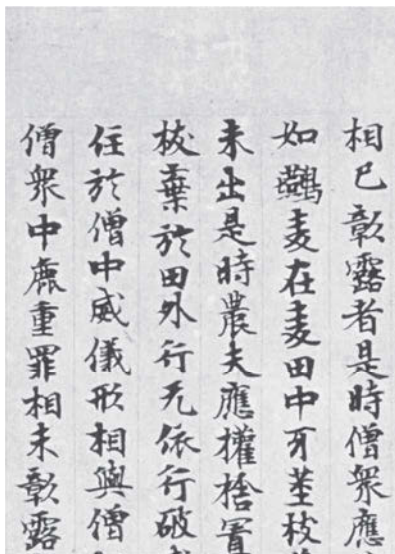 相已彰露者是時僧衆應
如麥在麥田中牙莖枝
未出是時農夫應權捨置
拔棄於田外行无依行破
住於僧中威儀形相與僧
僧衆中麁重罪相未彰露